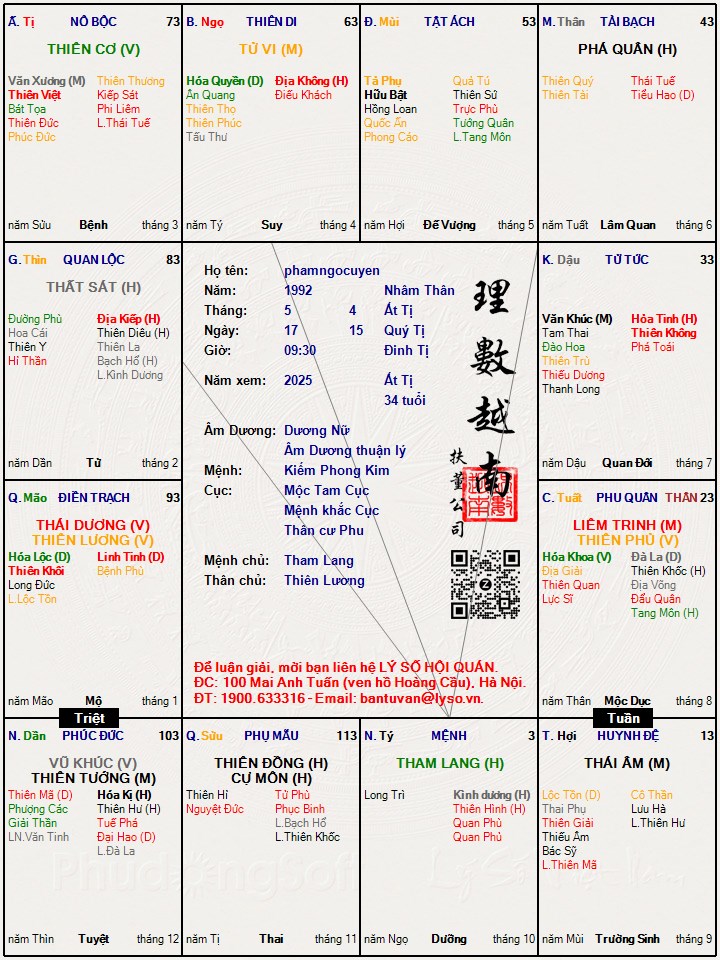 Ấ. Tị NÔ BỘC 73
THIÊN CƠ (V)
Văn Xương (M) Thiên Thương
Thiên Việt Kiếp Sát
Bát Tọa Phi Liêm
Thiên Đức L.Thái Tuế
Phúc Đức
năm Sửu Bệnh tháng 3
B. Ngọ THIÊN DI 63
TỬ VI (M)
Hóa Quyền (D) Địa Không (H)
Ân Quang Điếu Khách
Thiên Thọ
Thiên Phúc
Tấu Thư
năm Tý Suy tháng 4
Đ. Mùi TẬT ÁCH 53
Tả Phụ Quả Tú
Hữu Bật Thiên Sứ
Hồng Loan Trực Phù
Quốc Ấn Tướng Quân
Phong Cáo L.Tang Môn
năm Hợi Đế Vượng tháng 5
M. Thân TÀI BẠCH 43
PHÁ QUÂN (H)
Thiên Quý Thái Tuế
Thiên Tài Tiểu Hao (D)
năm Tuất Lâm Quan tháng 6
G. Thìn QUAN LỘC 83
THẤT SÁT (H)
Đường Phù Địa Kiếp (H)
Hoa Cái Thiên Diêu (H)
Thiên Y Thiên La
Hỉ Thần Bạch Hổ (H)
L.Kình Dương
năm Dần Tử tháng 2
Họ tên: phamngocuyen
Năm: 1992 Nhâm Thân
Tháng: 5 4 Ất Tị
Ngày: 17 15 Quý Tị
Giờ: 09:30 Đinh Tị
Năm xem: 2025 Ất Tị
34 tuổi
Âm Dương: Dương Nữ
Âm Dương thuận lý
Mệnh: Kiếm Phong Kim
Cục: Mộc Tam Cục
Mệnh khắc Cục
Thân cư Phu
Mệnh chủ: Tham Lang
Thân chủ: Thiên Lương
理數越南
扶董公司
Z
Để luận giải, mời bạn liên hệ LÝ SỐ HỘI QUÁN.
ĐC: 100 Mai Anh Tuấn (ven hồ Hoàng Cầu), Hà Nội.
ĐT: 1900.633316 - Email: bantuvan@lyso.vn.
K. Dậu TỬ TỨC 33
Văn Khúc (M) Hỏa Tinh (H)
Tam Thai Thiên Không
Đào Hoa Phá Toái
Thiên Trù
Thiếu Dương
Thanh Long
năm Dậu Quan Đới tháng 7
Q. Mão ĐIỀN TRẠCH 93
THÁI DƯƠNG (V)
THIÊN LƯƠNG (V)
Hóa Lộc (D) Linh Tinh (D)
Thiên Khôi Bệnh Phù
Long Đức
L.Lộc Tồn
năm Mão Mộ tháng 1
C. Tuất PHU QUÂN THÂN 23
LIÊM TRINH (M)
THIÊN PHỦ (V)
Hóa Khoa (V) Đà La (D)
Địa Giải Thiên Khốc (H)
Thiên Quan Địa Võng
Lực Sĩ Đẩu Quân
Tang Môn (H)
năm Thân Mộc Dục tháng 8
Triệt
Tuần
N. Dần PHÚC ĐỨC 103
VŨ KHÚC (V)
THIÊN TƯỚNG (M)
Thiên Mã (D) Hóa Kị (H)
Phượng Các Thiên Hư (H)
Giải Thần Tuế Phá
LN.Văn Tinh Đại Hao (D)
L.Đà La
năm Thìn Tuyệt tháng 12
Q. Sửu PHỤ MẪU 113
THIÊN ĐỒNG (H)
CỰ MÔN (H)
Thiên Hỉ Tử Phù
Nguyệt Đức Phục Binh
L.Bạch Hổ
L.Thiên Khốc
năm Tị Thai tháng 11
N. Tý MỆNH 3
THAM LANG (H)
Long Trì Kình dương (H)
Thiên Hình (H)
Quan Phù
Quan Phủ
năm Ngọ Dưỡng tháng 10
T. Hợi HUYNH ĐỆ 13
THÁI ÂM (M)
Lộc Tồn (D) Cô Thần
Thai Phụ Lưu Hà
Thiên Giải L.Thiên Hư
Thiếu Âm
Bác Sỹ
L.Thiên Mã
năm Mùi Trường Sinh tháng 9